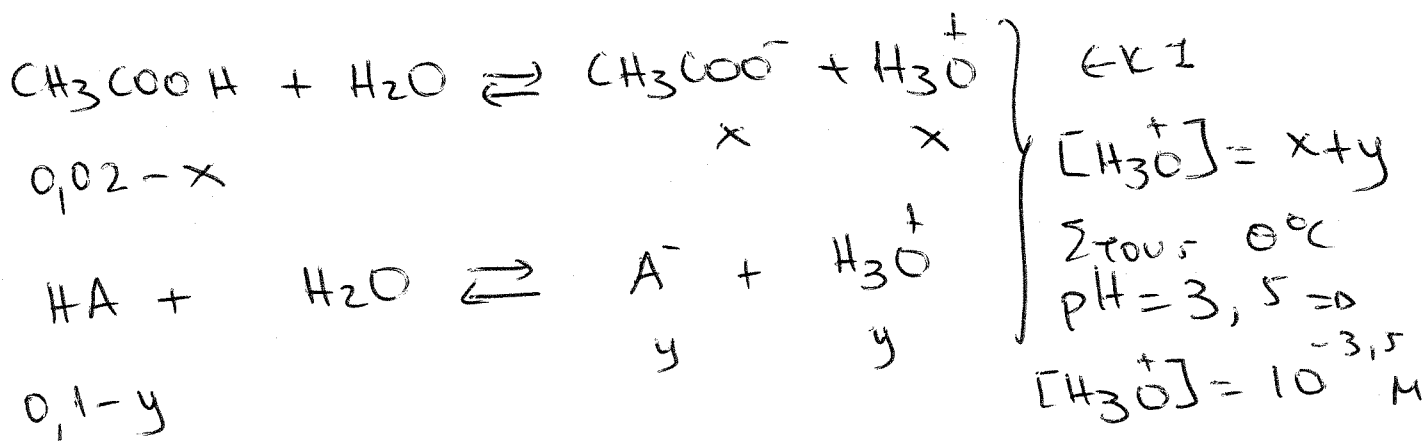 CH₃COOH + H₂O ⇌ CH₃COO⁻ + H₃O⁺
0,02-x x x
HA + H₂O ⇌ A⁻ + H₃O⁺
0,1-y y y
ΕΚΙ
[H₃O⁺] = x+y
Στους θ°C
pH = 3,5 =>
[H₃O⁺] = 10⁻³,⁵ M